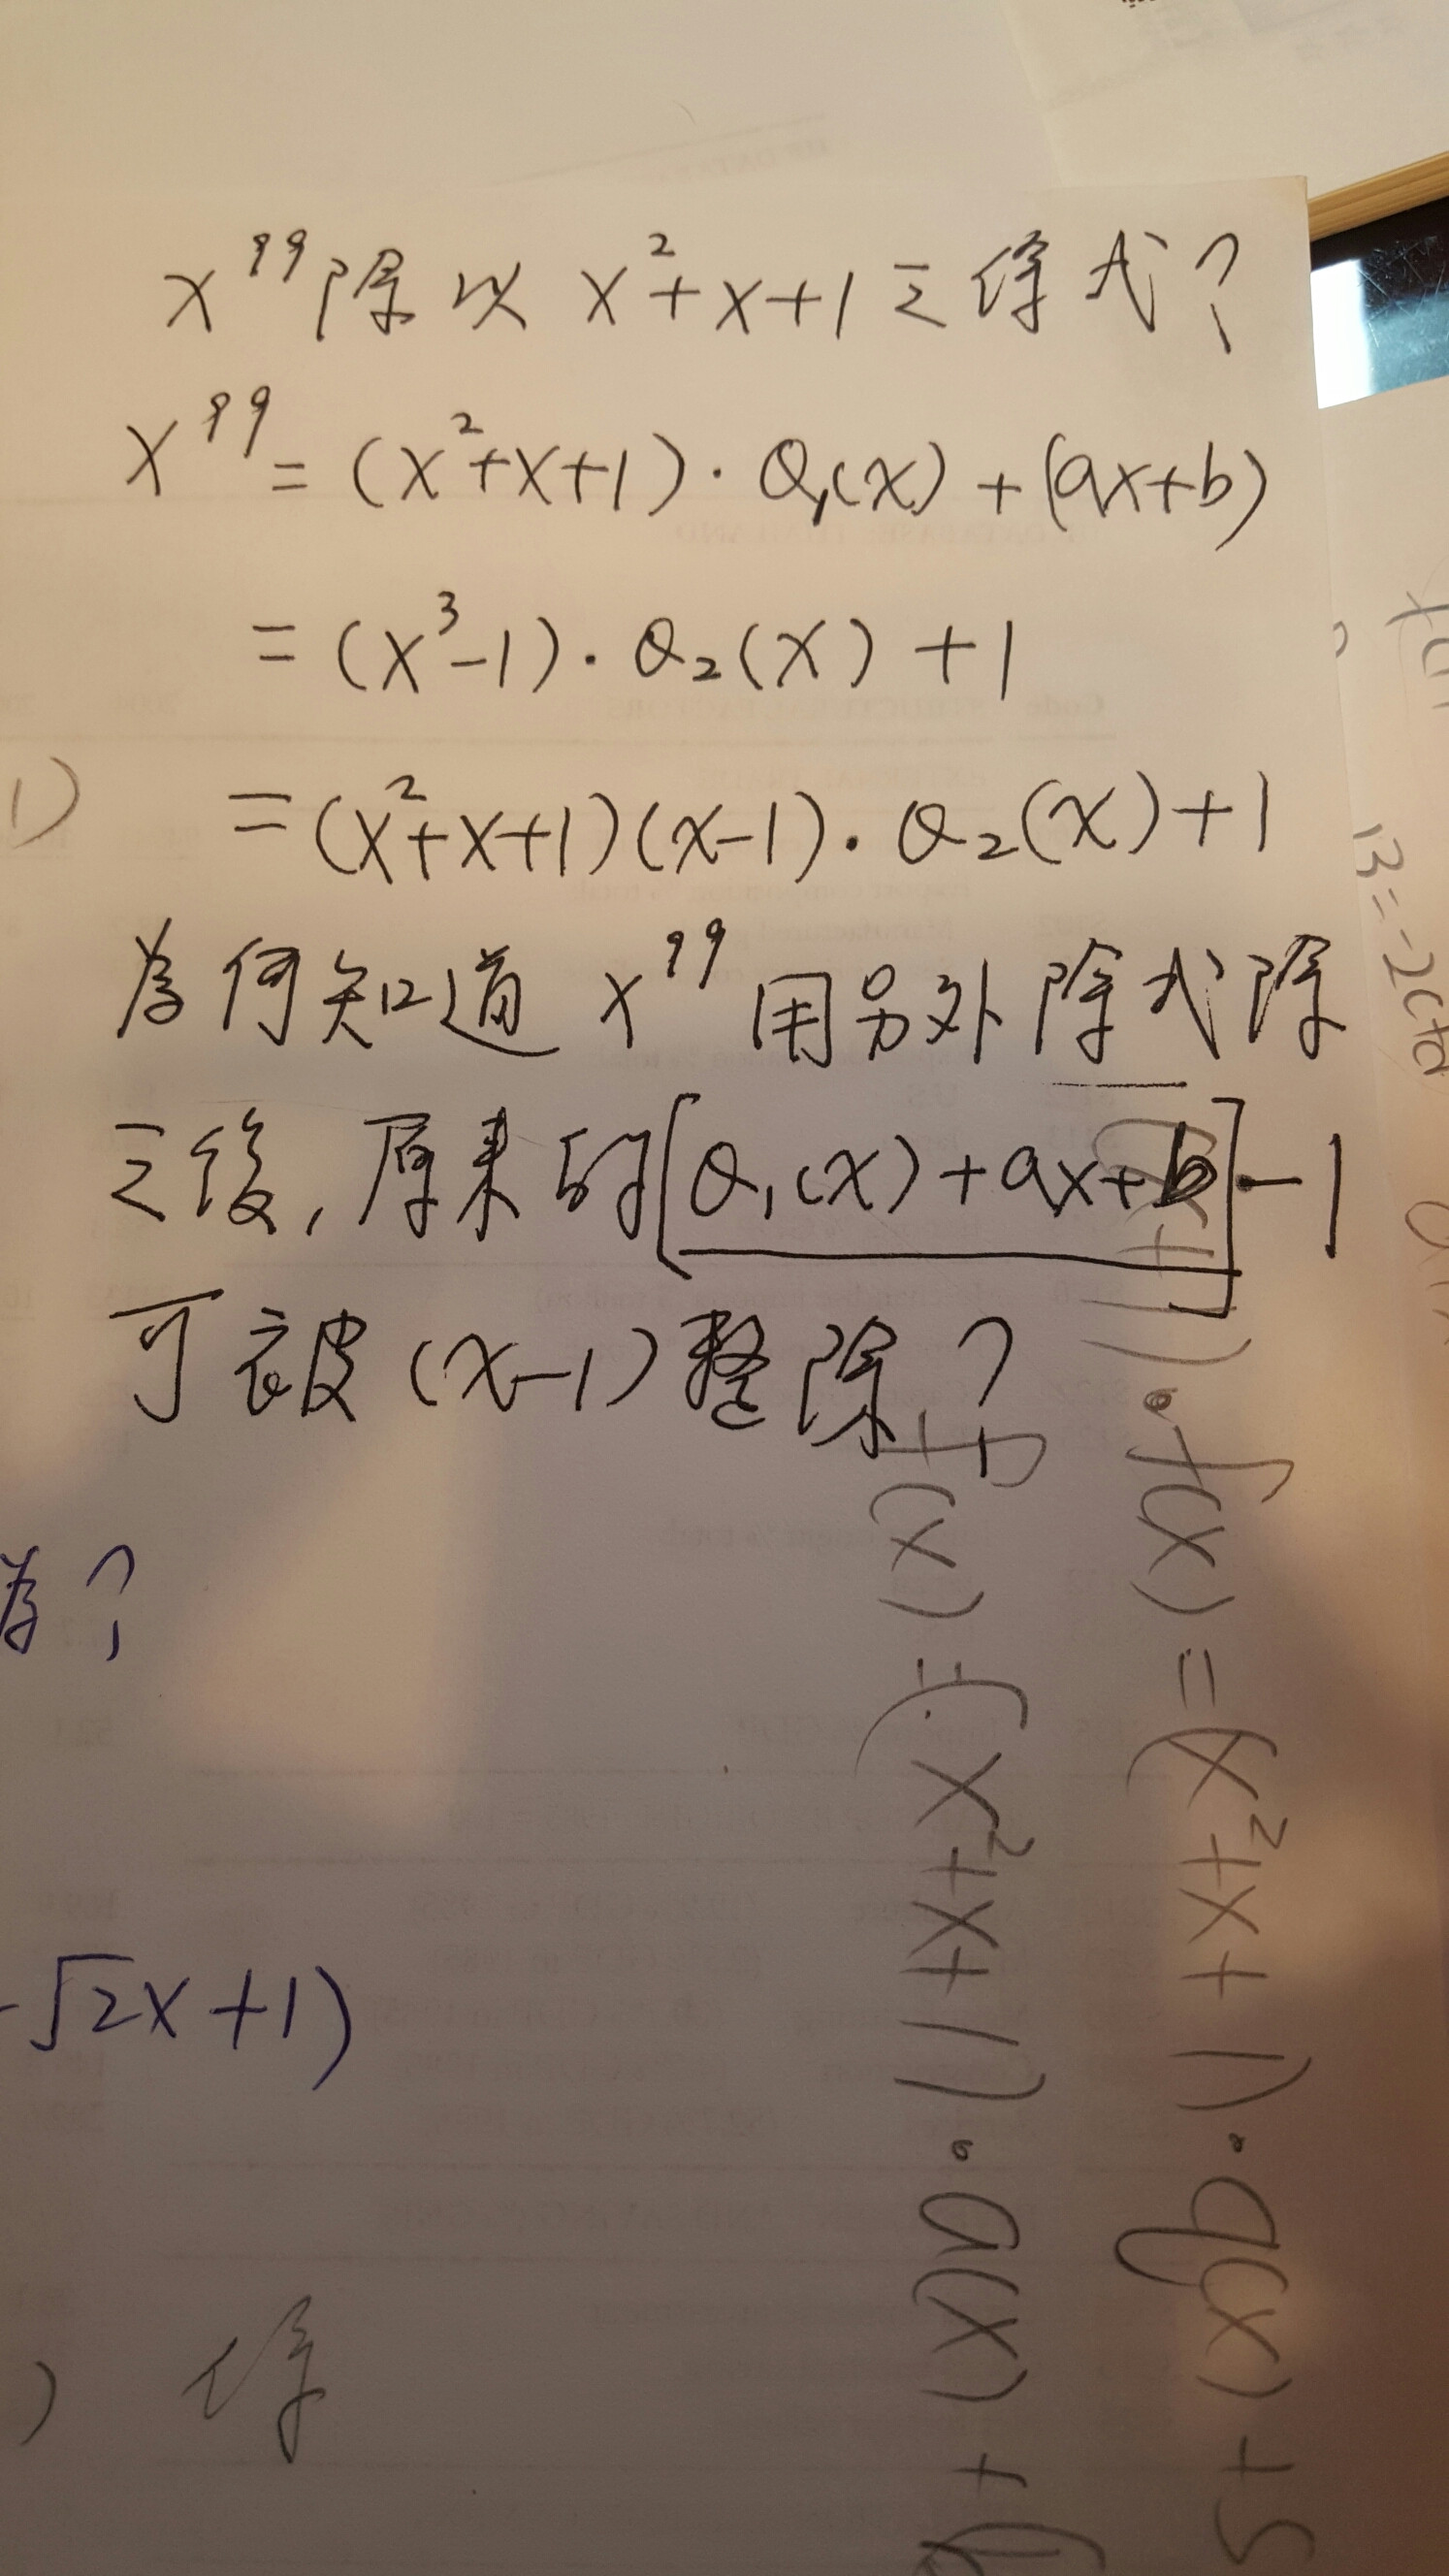 x⁹⁹除以 x²+x+1之餘式?
x⁹⁹ = (x²+x+1)·Q₁(x)+(ax+b)
= (x³-1)·Q₂(x)+1
= (x²+x+1)(x-1)·Q₂(x)+1
為何知道 x⁹⁹用另外除式除
之後,原來的[Q₁(x)+ax+b]-1
可被(x-1)整除?
為?
-√2x+1)
餘
1)
)
f(x)=(x²+x+1)·Q(x)+
)·f(x)=(x²+x+1)·q(x)+5
13=-2c+d